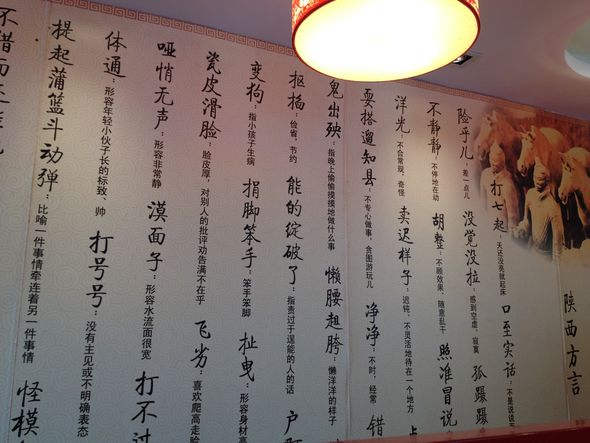 陕西方言
打七起：天还没亮就起床 口至实话：不是说
险乎儿：差一点儿 没觉没拉：感到空虚，寂寞 孤蹑蹑
不静静：不停地在动 胡整：不顾效果，随意乱干 照准冒说
洋光：不合常规，奇怪 卖迟样子：迟钝，不灵活地待在一个地方
耍搭遛知县：不专心做事，贪图游玩儿 净净：不时，经常 错
鬼出殃：指晚上偷偷摸摸地做什么事 懒腰趄胯：懒洋洋的样子
抠掐：俭省，节约 能的绽破了：指责过于逞能的人的话 户
变狗：指小孩子生病 捐脚笨手：笨手笨脚 扯曳：形容身材高
瓷皮滑脸：脸皮厚，对别人的批评劝告满不在乎 飞劣：喜欢爬高走险
哑悄无声：形容非常静 漠面子：形容水流面很宽 打不过
体通：形容年轻小伙子长的标致、帅 打号号：没有主见或不明确表态
提起蒲篮斗动弹：比喻一件事情牵连着另一件事情 怪模
不错而